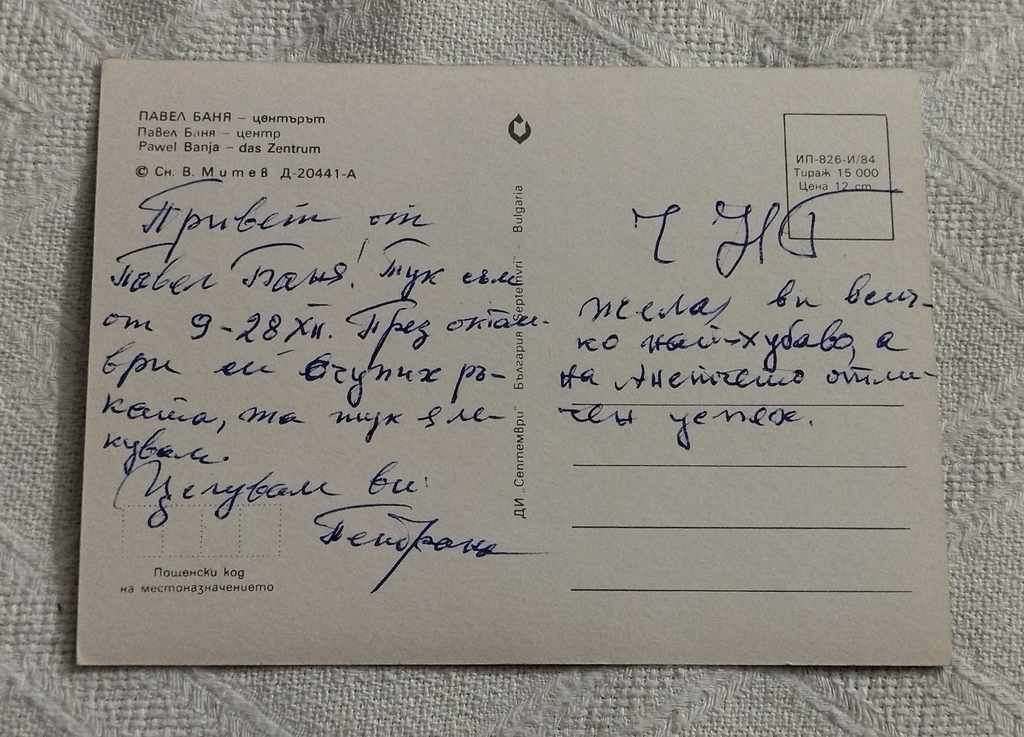 ПАВЕЛ БАНЯ – центърът
Павел Баня – центр
Pawel Banja – das Zentrum
© Сн. В. Митев Д-20441-А
Привет от
Павел Баня! Тук съм
от 9-28 XII. През октом-
ври си счупих ръ-
ката, та тук я ле-
кувам.
Целувам ви:
Пощенски код
на местоназначението
ДИ „Септември" България "Septemvri" - Bulgaria
ИП-826-И/84
Тираж 15 000
Цена 12 ст.
Ч Н Г
Желая ви всич-
ко най-хубаво, а
на Анетчето отли-
чен успех.